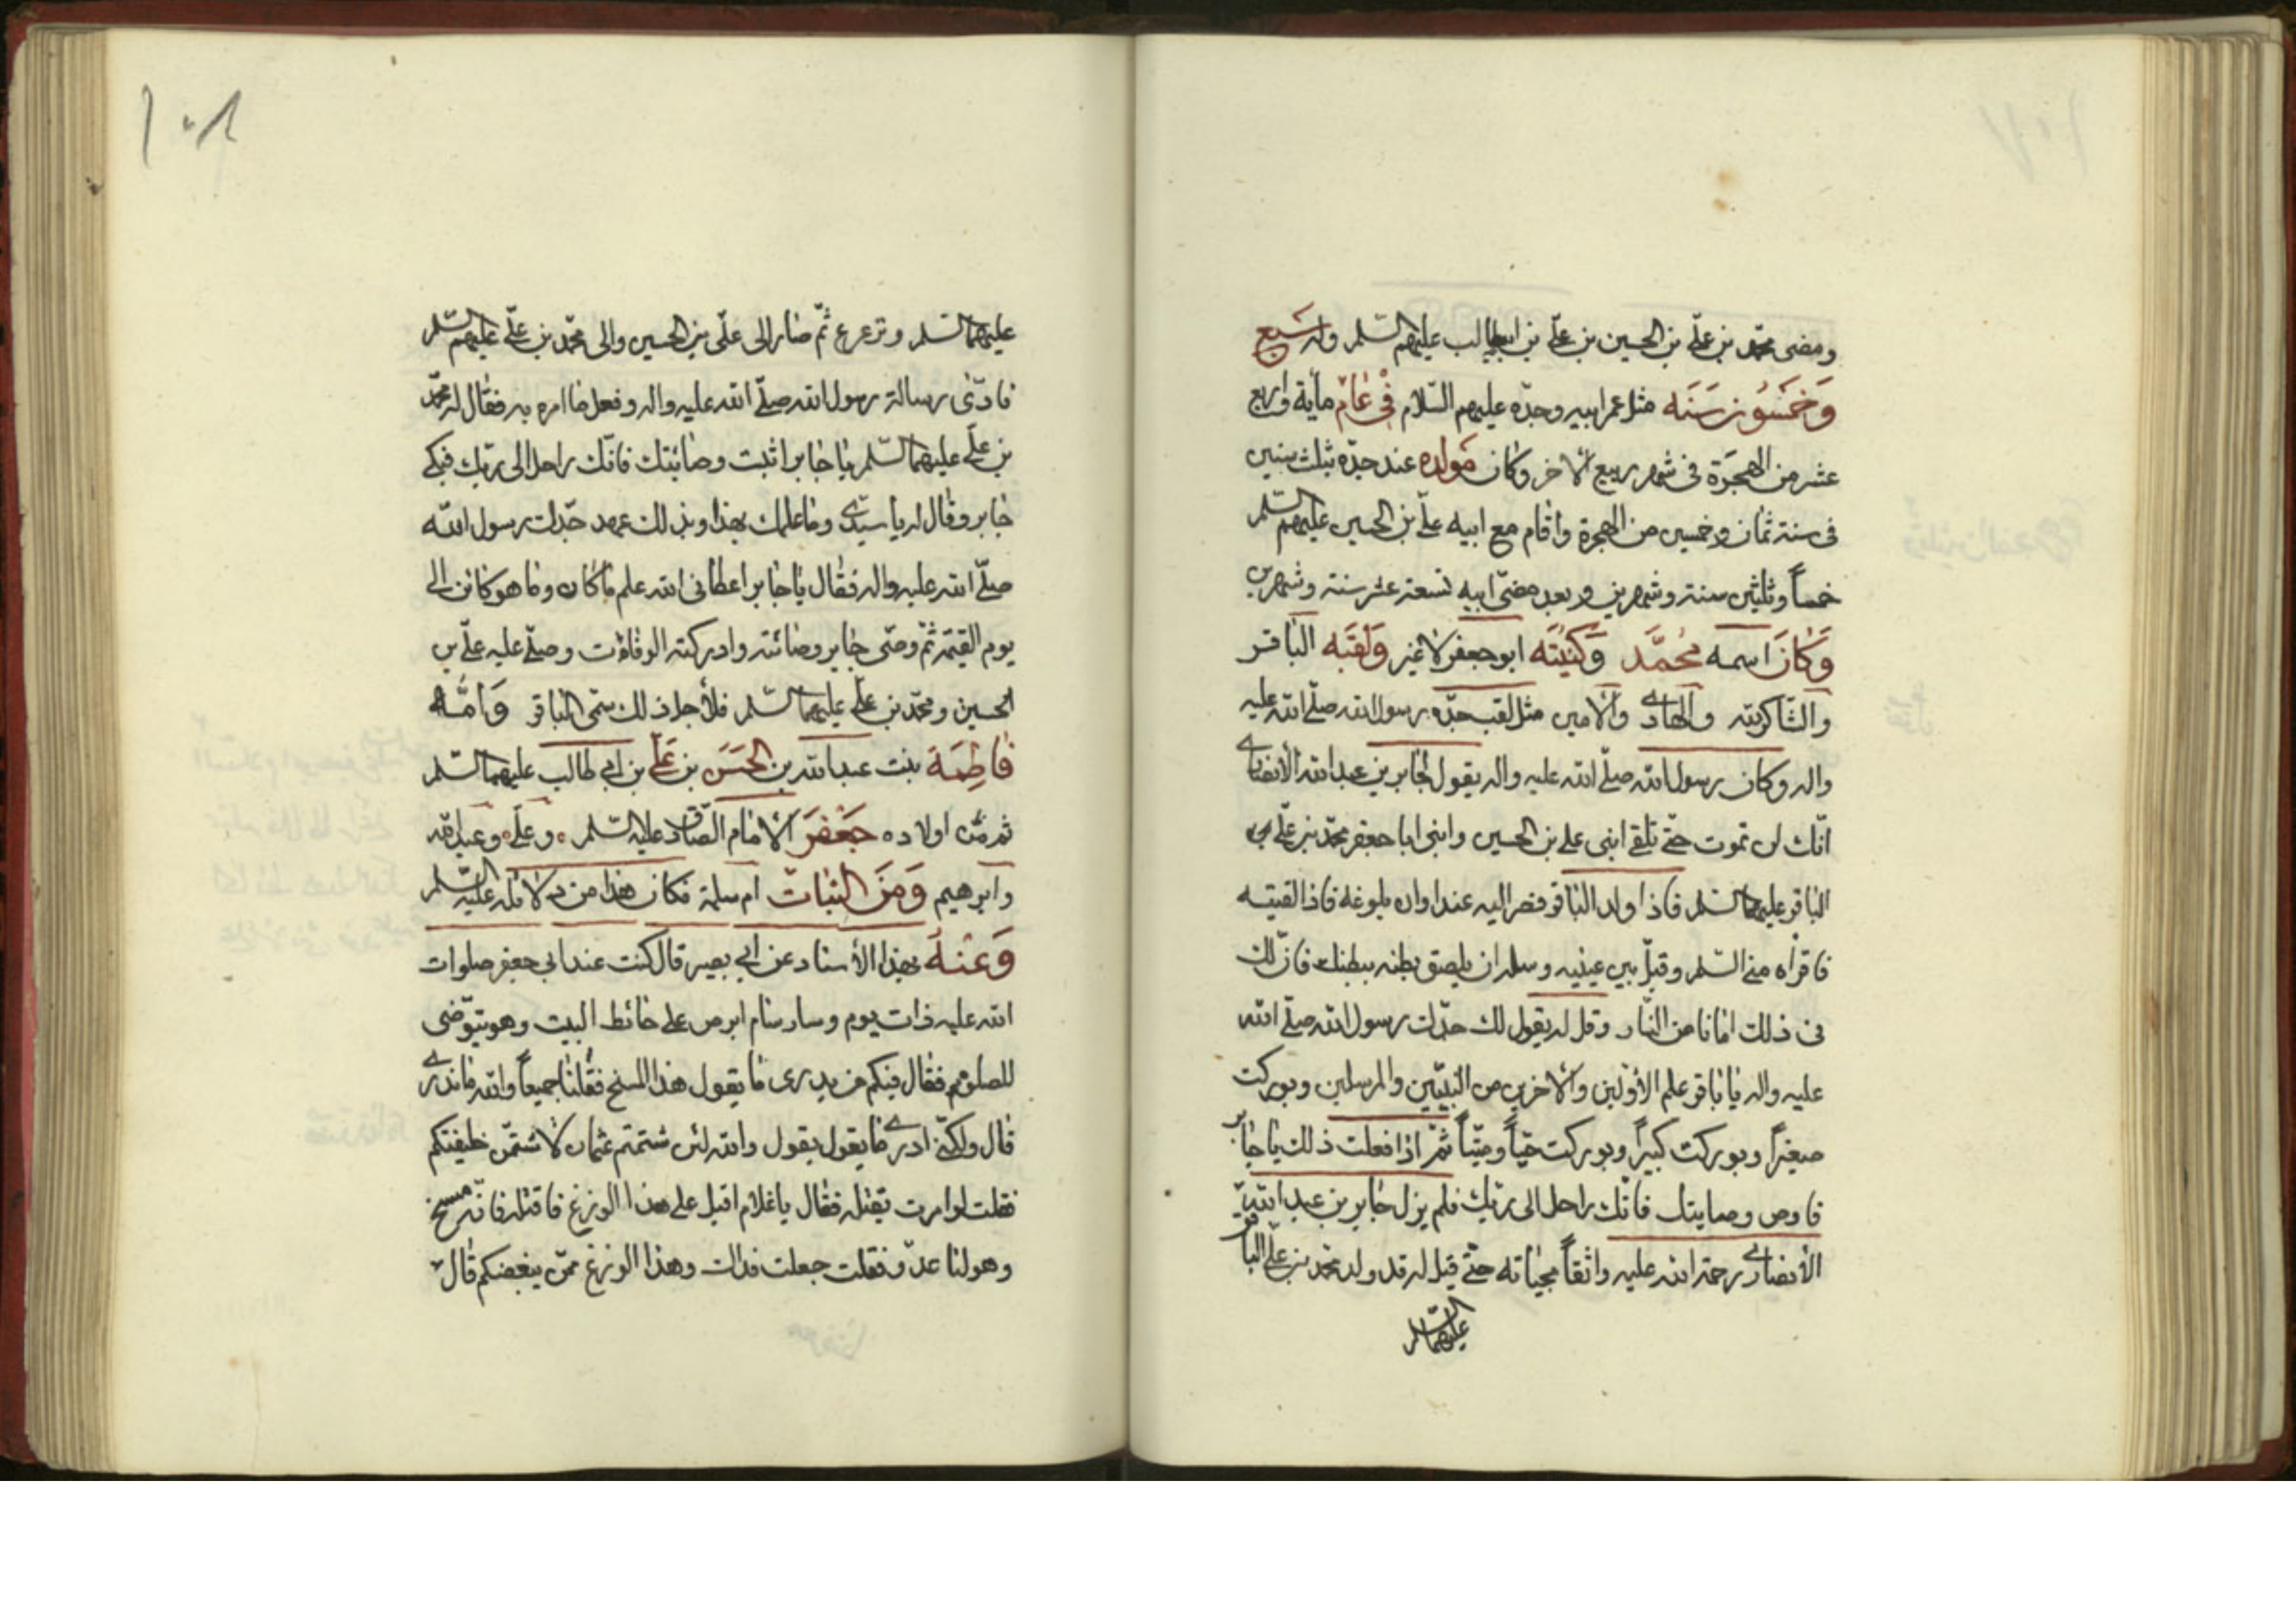 ومضى محمّد بن علّي بن الحسين بن علّي بن ابيطالب عليهم السّلم وله سَبع
وَخمَسُون سَنَه مثل عمر ابيه وجدّه عليهم السّلام فى عَام مأية واربع
عشر من الهجَرة فى شهر ربيع الاخر وكان مَولده عند جدّه بثلث سنين
فى سنة ثمان وخمسين من الهجرة واقام مع ابيه علّي بن الحسين عليهم السّلم
خمساً وثلثين سنة وشهرين وبعد مضىّ ابيه تسعة عشر سنة وشهرين
وَكانَ اسمه مُحمَّد وَكنيَتَه ابو جعفر لا غير وَلقبَه الباقر
والشّاكر لله والهادى والامين مثل لقب جدّه رسول الله صلّي الله عليه
واله وكان رسول الله صلّي الله عليه واله يقول لجابر بن عبد الله الأنصارى
انّك لن تموت حتّي تلقي ابنى علي بن الحسين وابنى ابا جعفر محمّد بن علّي
الباقر عليهما السّلم فاذا ولد الباقر فصر اليه عند اوان بلوغه فاذا لقيته
فاقراه منّي السّلم وقبّل بين عينيه وسله ان يلصق بطنه ببطنك فانّ لك
فى ذلك امانا من النّار وقل له يقول لك جدّك رسول الله صلّي الله
عليه واله يا باقر علم الأوّلين والاخرين من النّبيّين والمرسلين وبوركت
صغيراً وبوركت كبيراً وبوركت حيّاً وميّتاً ثمّ اذا فعلت ذلك يا جابر
فاوص وصايتك فانّك راحل الى ربّك فلم يزل جابر بن عبد الله
الأنصارى رحمة الله عليه واثقاً بحياته حتّي قيل له قد ولد محمّد بن علّي الباقر
عليهما السّلم
١٠٨
عليهما السّلم وترعرع ثمّ صار الى علّي بن الحسين والى محمّد بن علّي عليهم السّلم
فادّى رسالة رسول الله صلّي الله عليه واله وفعل ما امره به فقال له محمّد
بن علّي عليهما السّلم يا جابر اثبت وصائتك فانّك راحل الى ربّك فبكي
جابر وقال له يا سيّدى وما علمك بهذا وبذلك عهد جدّك رسول الله
صلّي الله عليه واله فقال يا جابر اعطانى الله علم ما كان وما هو كائن الى
يوم القيمة ثمّ وصّى جابر وصائته وادركته الوفاة وصلّي عليه علّي بن
الحسين ومحمّد بن علّي عليهما السّلم فلأجل ذلك سمّى الباقر وَامُّه
فاطِمَة بنت عبد الله بن الحسَنَ بن عَلّي بن ابي طالب عليهما السّلم
ثم من اولاده جَعْفَر الامام الصّادق عليه السّلم وعلّي وعبد الله
وابرهيم وَمنَ البنات ام سلمة فكان هذا من دلائله عليه السّلم
وَعَنهُ بهذا الأسناد عن ابي بصير قال كنت عند ابي جعفر صلوات
الله عليه ذات يوم وسار سام ابرص علي حائط البيت وهو يتوّضى
للصلوة فقال فيكم من يدرى ما يقول هذا المسخ فقلنا جميعاً والله ما ندرى
قال ولكنّي ادرى ما يقول يقول والله لئن شتمتم عثمان لاشتمنّ خليفتكم
فقلت لو امرت بقتله فقال يا غلام اقبل علي هذا الوزغ فاقتله فانّه مسخ
وهو لنا عدّو فقلت جعلت فداك وهذا الوزغ ممّن يبغضكم قال